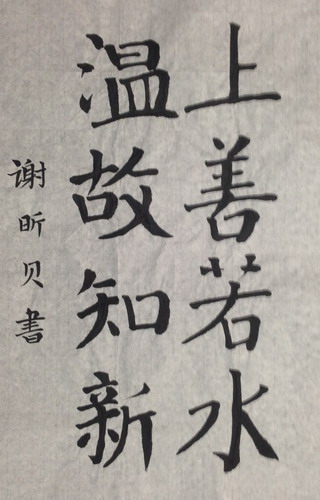 上善若水
温故知新
谢昕贝书